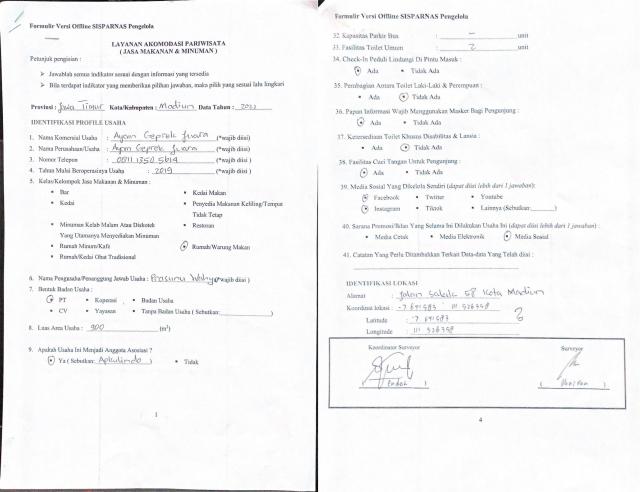 Formulir Versi Offline SISPARNAS Pengelola
LAYANAN AKOMODASI PARIWISATA
( JASA MAKANAN & MINUMAN )
Petunjuk pengisian :
➢ Jawablah semua indikator sesuai dengan informasi yang tersedia
➢ Bila terdapat indikator yang memberikan pilihan jawaban, maka pilih yang sesuai lalu lingkari
Provinsi : Jawa Timur Kota/Kabupaten : Madiun Data Tahun : 2022
IDENTIFIKASI PROFILE USAHA
1. Nama Komersial Usaha : Ayam Geprek Juara (*wajib diisi)
2. Nama Perusahaan/Usaha : Ayam Geprek Juara (*wajib diisi )
3. Nomor Telepon : 0811 1350 5614 (*wajib diisi )
4. Tahun Mulai Beroperasinya Usaha : 2019 (*wajib diisi )
5. Kelas/Kelompok Jasa Makanan & Minuman :
• Bar • Kedai Makan
• Kedai • Penyedia Makanan Keliling/Tempat
Tidak Tetap
• Minuman Kelab Malam Atau Diskotek • Restoran
Yang Utamanya Menyediakan Minuman
• Rumah Minum/Kafe • Rumah/Warung Makan
• Rumah/Kedai Obat Tradisional
6. Nama Pengusaha/Penanggung Jawab Usaha : (*wajib diisi )
7. Bentuk Badan Usaha :
• PT • Koperasi • Badan Usaha
• CV • Yayasan • Tanpa Badan Usaha ( Sebutkan: )
8. Luas Area Usaha : 300 (m²)
9. Apakah Usaha Ini Menjadi Anggota Asosiasi ?
• Ya ( Sebutkan: Apkulindo ) • Tidak
1
Formulir Versi Offline SISPARNAS Pengelola
32. Kapasitas Parkir Bus : – unit
33. Fasilitas Toilet Umum : 2 unit
34. Check-In Peduli Lindungi Di Pintu Masuk :
• Ada • Tidak Ada
35. Pembagian Antara Toilet Laki-Laki & Perempuan :
• Ada • Tidak Ada
36. Papan Informasi Wajib Menggunakan Masker Bagi Pengunjung :
• Ada • Tidak Ada
37. Ketersediaan Toilet Khusus Disabilitas & Lansia :
• Ada • Tidak Ada
38. Fasilitas Cuci Tangan Untuk Pengunjung :
• Ada • Tidak Ada
39. Media Sosial Yang Dikelola Sendiri (dapat diisi lebih dari 1 jawaban):
• Facebook • Twitter • Youtube
• Instagram • Tiktok • Lainnya (Sebutkan: )
40. Sarana Promosi/Iklan Yang Selama Ini Dilakukan Usaha Ini (dapat diisi lebih dari 1 jawaban) :
• Media Cetak • Media Elektronik • Media Sosial
41. Catatan Yang Perlu Ditambahkan Terkait Data-data Yang Telah diisi :
IDENTIFIKASI LOKASI
Alamat : Jalan Salak 58 Kota Madiun
Koordinat lokasi : -7.641583 111.526358
Latitude : -7.641583
Longitude : 111.526358
Koordinator Surveyor Surveyor
( Endah ) ( )
4